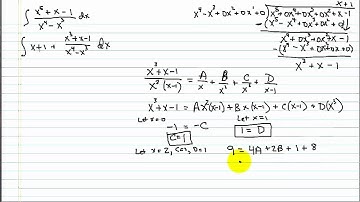 ∫ (x⁵ + x - 1)/(x⁴ - x³) dx
∫ x + 1 + (x³ + x - 1)/(x⁴ - x³) dx
x + 1
x⁴ - x³ + 0x² + 0x + 0 √(x⁵ + 0x⁴ + 0x³ + 0x² + x - 1)
- (x⁵ - x⁴ + 0x³ + 0x² + 0x)
x⁴ + 0x³ + 0x² + x - 1
- (x⁴ - x³ + 0x² + 0x + 0)
x³ + x - 1
(x³ + x - 1)/(x³ (x - 1)) = A/x + B/x² + C/x³ + D/(x - 1)
x³ + x - 1 = Ax²(x-1) + Bx(x-1) + C(x-1) + D(x³)
Let x = 0
-1 = -C
C = 1
Let x = 1
1 = D
Let x = 2, C = 1, D = 1
9 = 4A + 2B + 1 + 8